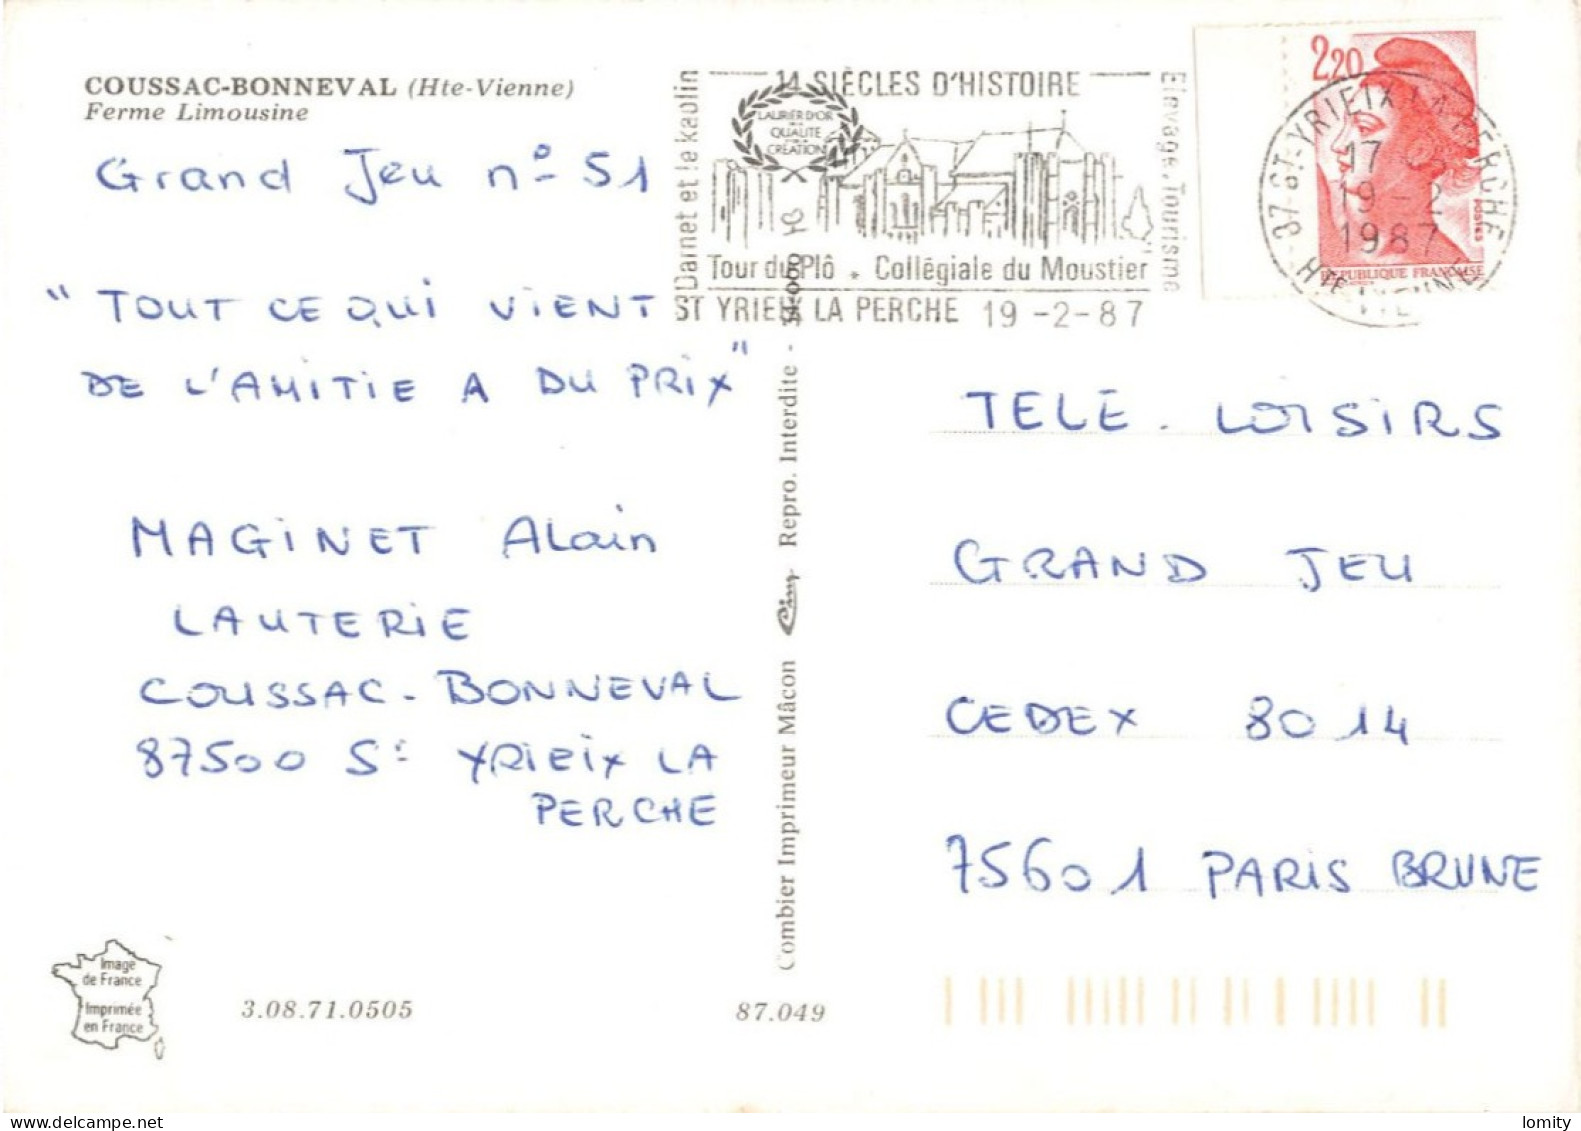 COUSSAC-BONNEVAL (Hte-Vienne)
Ferme Limousine
Grand Jeu n° 51
" TOUT CE QUI VIENT
DE L'AMITIE A DU PRIX "
MAGINET Alain
LAUTERIE
COUSSAC-BONNEVAL
87500 St YRIEIX LA
PERCHE
Image
de France
Imprimée
en France
3.08.71.0505
87.049
Combier Imprimeur Mâcon Cim Repro. Interdite -
Darnet et le kaolin
14 SIÈCLES D'HISTOIRE
LAURIER D'OR
QUALITE
CREATION
Elevage, Tourisme
Tour du Plô . Collégiale du Moustier
ST YRIEIX LA PERCHE 19 -2-87
2,20
POSTES
REPUBLIQUE FRANÇAISE
87 ST-YRIEIX-LA-PERCHE
17
19 -2
1987
HTE VIENNE
TELE. LOISIRS
GRAND JEU
CEDEX 8014
75601 PARIS BRUNE
lomity